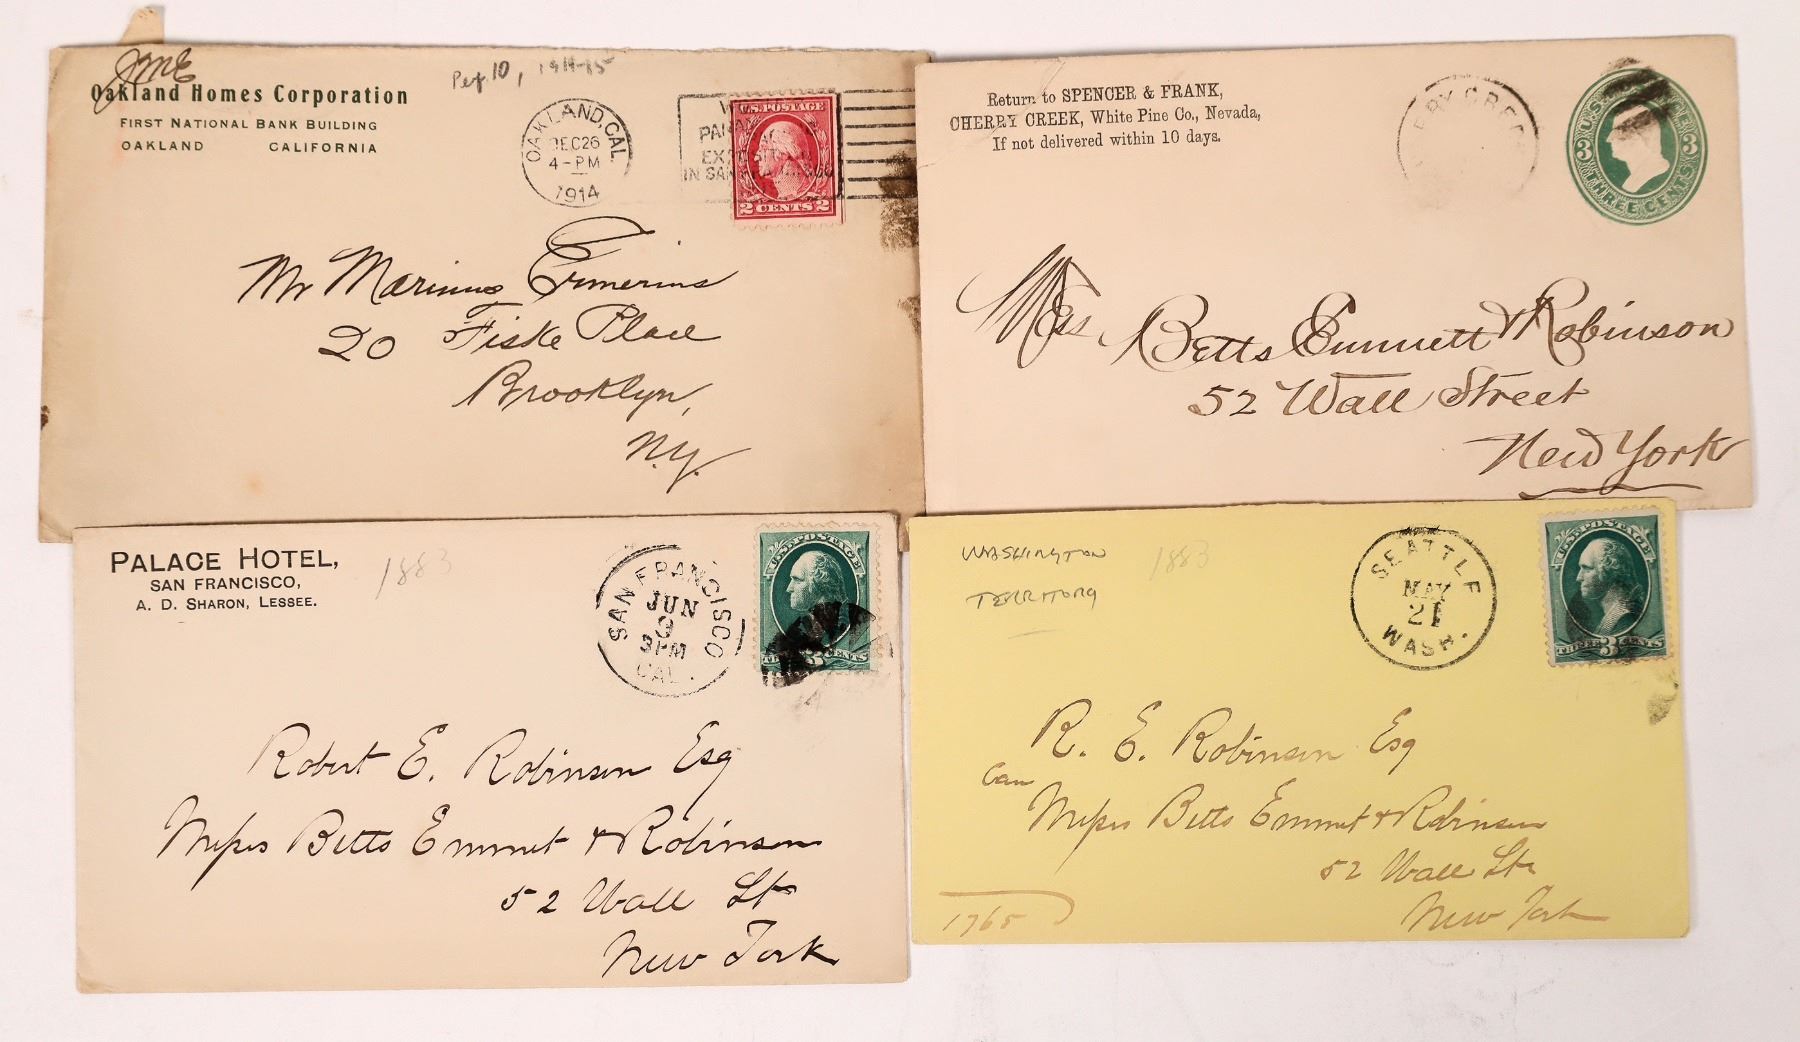 JME
Oakland Homes Corporation
FIRST NATIONAL BANK BUILDING
OAKLAND CALIFORNIA
OAKLAND, CAL.
DEC 26
4-PM
1914
IN SAN FRANCISCO
U.S. POSTAGE
2 CENTS 2
Mr Marinus
20 Fiske Place
Brooklyn,
N.Y.
Return to SPENCER & FRANK,
CHERRY CREEK, White Pine Co., Nevada,
If not delivered within 10 days.
U.S. POSTAGE
3 3
THREE CENTS
Mess. Betts Emmett & Robinson
52 Wall Street
New York
PALACE HOTEL,
SAN FRANCISCO,
A. D. SHARON, LESSEE.
1883
SAN FRANCISCO
JUN
9
3 PM
CAL.
U.S. POSTAGE
3 CENTS
Robert E. Robinson Esq
Messrs Betts Emmet & Robinson
52 Wall St
New York
WASHINGTON
TERRITORY
1883
SEATTLE
MAY
21
WASH.
U.S. POSTAGE
THREE 3 CENTS
R. E. Robinson Esq
Care
Messrs Betts Emmet & Robinson
52 Wall St
New York
1765